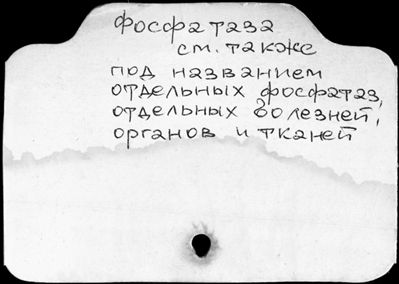 Фосфатаза
см. также
под названием
отдельных фосфатаз,
отдельных болезней,
органов и тканей